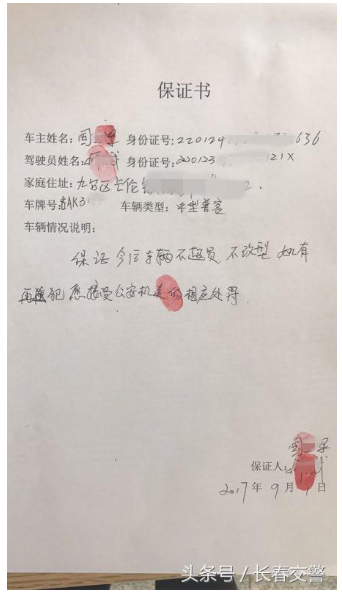 保证书
车主姓名: 身份证号: 220124 636
驾驶员姓名: 身份证号: 220123 21X
家庭住址: 九台区卡伦
车牌号: 吉AK3 车辆类型: 中型普客
车辆情况说明:
保证今后车辆不超员 不改型 如有
再犯 愿接受公安机关的相应处罚
保证人:
2017年9月 日
头条号 / 长春交警